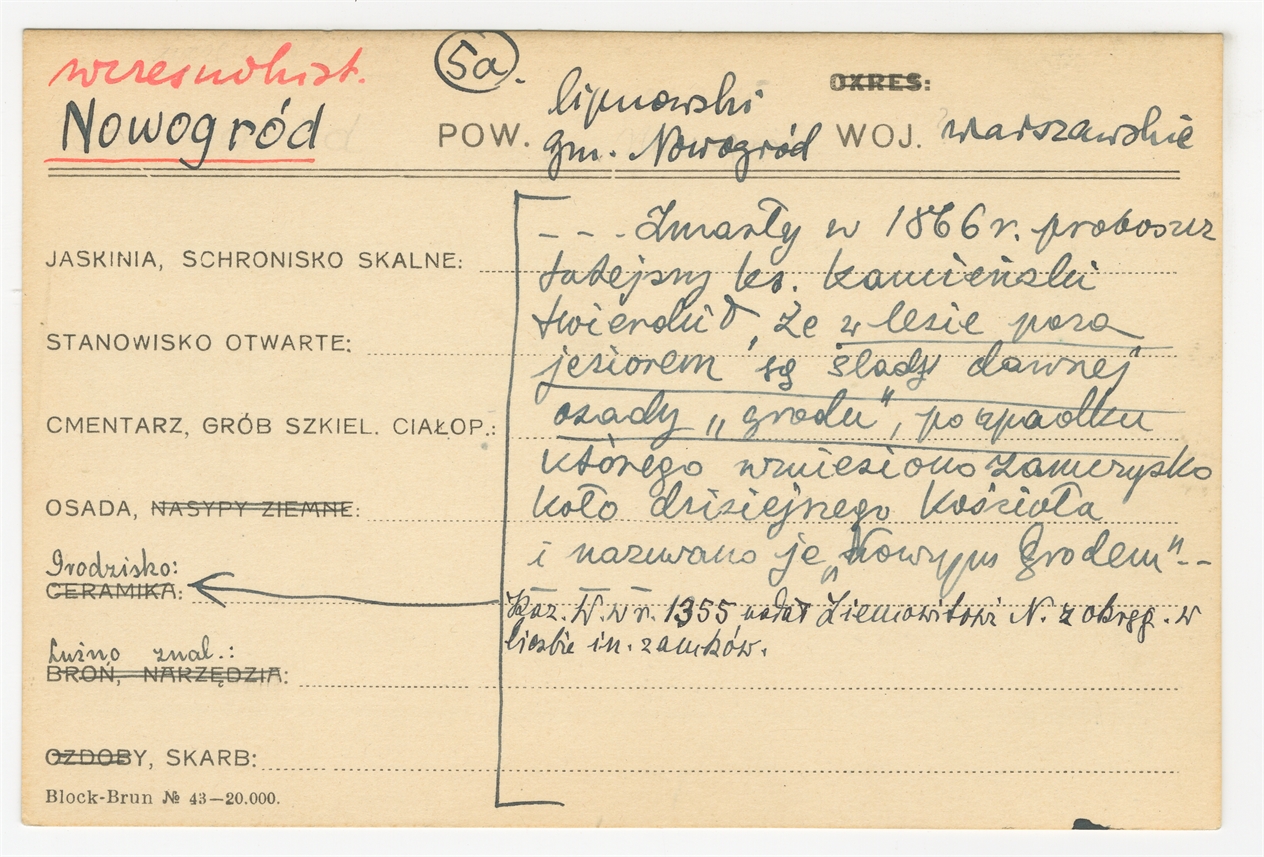 wczesnohist.
5a.
Nowogród
POW. lipnowski
gm. Nowogród
OKRES:
WOJ. warszawskie
- - - Zmarły w 1866 r. proboszcz
tutejszy ks. Kamieński
twierdził, że w lesie poza
jeziorem są ślady dawnej
osady „grodu", po upadku
którego wzniesiono zameczysko
koło dzisiejszego kościoła
i nazwano je „Nowym Grodem" - -
Kaz. W. w r. 1355 nadał Ziemowitowi N. z okręg. w
liczbie in. zamków.
JASKINIA, SCHRONISKO SKALNE:
STANOWISKO OTWARTE:
CMENTARZ, GRÓB SZKIEL. CIAŁOP.:
OSADA, NASYPY ZIEMNE:
Grodzisko:
CERAMIKA:
Luźno znal.:
BROŃ, NARZĘDZIA:
OZDOBY, SKARB:
Block-Brun № 43—20.000.